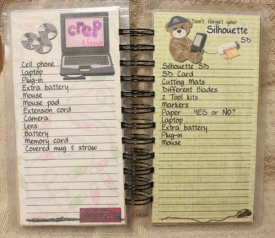 crop
Cell phone
Laptop
Plug-in
Extra battery
Mouse
Mouse pad
Extension cord
Camera
Lens
Battery
Memory card
Covered mug & straw
Don't forget your
Silhouette
SD
Silhouette SD
SD Card
Cutting Mats
Different Blades
2 Tool kits
Markers
Paper YES or NO?
Laptop
Extra battery
Plug-in
Mouse